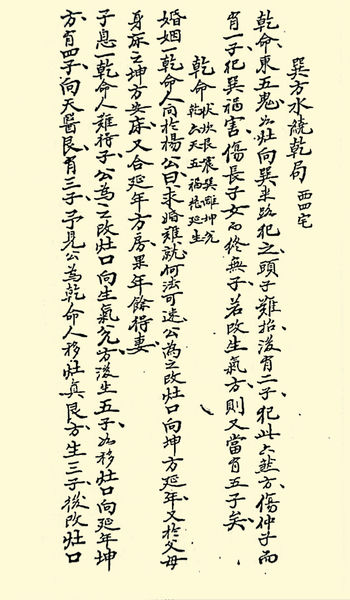 巽方水繞乾局 西四宅
乾命、東五鬼以灶向巽半路犯之、頭子難招後有二子、犯此六煞方、傷仲子而
有一子犯巽禍害、傷長子女而終無子、若改生氣方、則又當有五子矣、
乾命 伏坎艮震巽離坤兌
乾六天五禍絕延生
婚姻一乾命人向於楊公曰求婚難就何法可速公為之改灶口向坤方延年又於父母
身床之坤方安床又合延年方房果年餘得妻
子息一乾命人難得子公為之改灶口向生氣兌方後生五子如移灶口向延年坤
方有四子向天醫艮有三子予見公為乾命人移灶真艮方生三子後改灶口